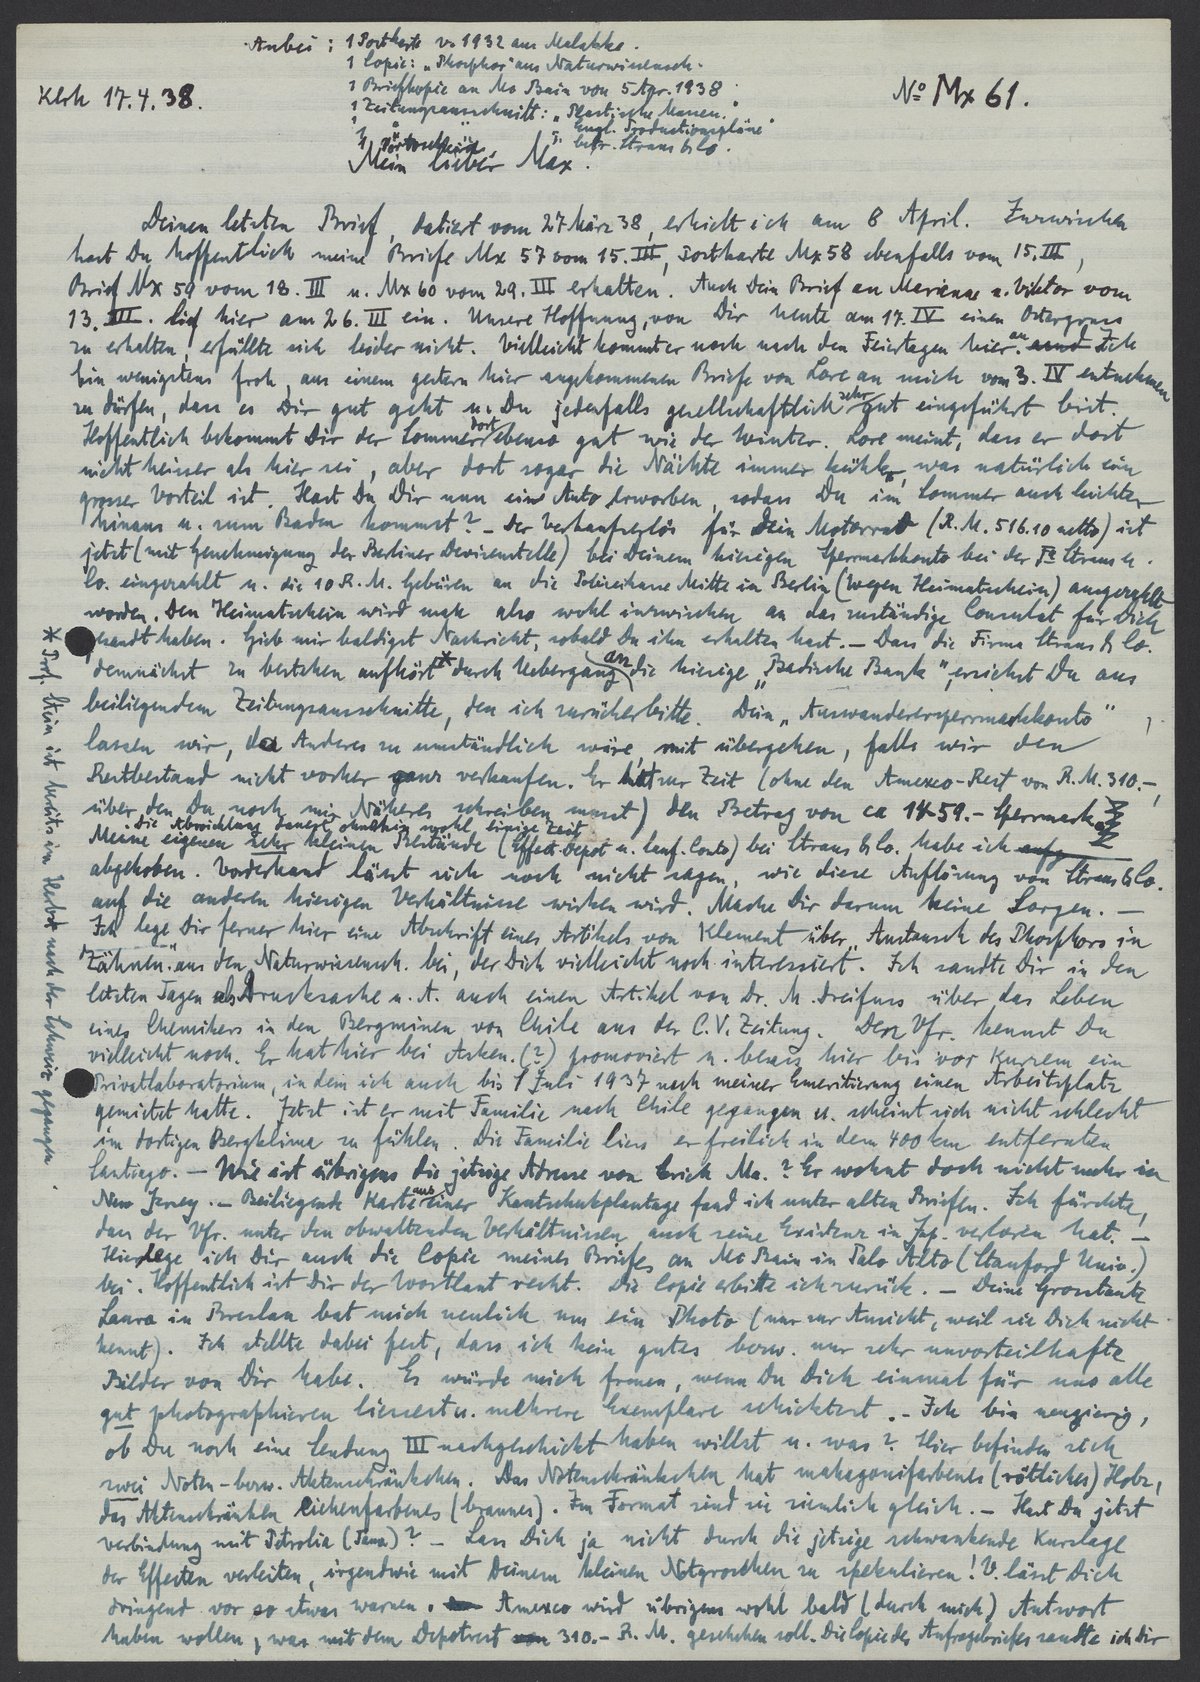 Anbei : 1 Postkarte v. 1932 aus Malakka.
1 Copie: „Phosphor" aus Naturwissensch.
1 Briefkopie an Mc Bain von 5 Apr. 1938
Klrh 17.4.38.
No Mx 61.
1 Zeitungsausschnitt: „Plastische Massen."
1 " " „Engl. Productionspläne"
1 " betr. Straus & Co.
Mein lieber Max.
Deinen letzten Brief, datiert vom 27 März 38, erhielt ich am 8 April. Inzwischen
hast Du hoffentlich meine Briefe Mx 57 vom 15. III, Postkarte Mx 58 ebenfalls vom 15. III,
Brief Mx 59 vom 18. III u. Mx 60 vom 29. III erhalten. Auch Dein Brief an Marianne u. Viktor vom
13. III. lief hier am 26. III ein. Unsere Hoffnung, von Dir heute am 17. IV einen Ostergruss
zu erhalten, erfüllte sich leider nicht. Vielleicht kommt er noch nach den Feiertagen hier an. Ich
bin wenigstens froh, aus einem gestern hier angekommenen Briefe von Lore an mich vom 3. IV entnehmen
zu dürfen, dass es Dir gut geht u. Du jedenfalls gesellschaftlich sehr gut eingeführt bist.
Hoffentlich bekommt Dir der Sommer dort ebenso gut wie der Winter. Lore meint, dass er dort
nicht heisser als hier sei, aber dort sogar die Nächte immer kühler, was natürlich ein
grosser Vorteil ist. Hast Du Dir nun ein Auto erworben, sodass Du im Sommer auch leichter
hinaus u. zum Baden kommst? – Der Verkaufserlös für Dein Motorrad (R.M. 516.10 netto) ist
jetzt (mit Genehmigung der Berliner Devisenstelle) bei Deinem hiesigen Sperrmarkkonto bei der Fa Straus u.
Co. eingezahlt u. die 10 R.M. Gebüren an die Polizeikasse Mitte in Berlin (wegen Heimatschein) ausgezahlt
worden. Den Heimatschein wird man also wohl inzwischen an das zuständige Consulat für Dich
gesandt haben. Gieb mir baldigst Nachricht, sobald Du ihn erhalten hast. – Dass die Firma Straus & Co.
demnächst zu bestehen aufhört * durch Uebergang an die hiesige „Badische Bank", ersiehst Du aus
beiliegendem Zeitungsausschnitte, den ich zurückerbitte. Dein „Auswanderersperrmarkkonto"
lassen wir, da Anderes zu umständlich wäre, mit übergehen, falls wir den
Restbestand nicht vorher ganz verkaufen. Er hat zur Zeit (ohne den Amexco-Rest von R.M. 310.–,
über den Du noch mir Näheres schreiben musst) den Betrag von ca 1459.– Sperrmark.
Die Abwicklung dauert ohnehin wohl einige Zeit.
Meine eigenen sehr kleinen Bestände (Effekt. Depot u. lauf. Conto) bei Straus & Co. habe ich
abgehoben. Vorderhand lässt sich noch nicht sagen, wie diese Auflösung von Straus & Co.
auf die anderen hiesigen Verhältnisse wirken wird. Mache Dir darum keine Sorgen. –
Ich lege Dir ferner hier eine Abschrift eines Artikels von Klement über „Austausch des Phosphors in
Zähnen" aus den Naturwissensch. bei, der Dich vielleicht noch interessiert. Ich sandte Dir in den
letzten Tagen als Drucksache u. A. auch einen Artikel von Dr. M. Dreifuss über das Leben
eines Chemikers in den Bergminen von Chile aus der C.V. Zeitung. Den Vfr. kennst Du
vielleicht noch. Er hat hier bei Asken. (?) promoviert u. besass hier bis vor Kurzem ein
Privatlaboratorium, in dem ich auch bis 1 Juli 1937 nach meiner Emeritierung einen Arbeitsplatz
gemietet hatte. Jetzt ist er mit Familie nach Chile gegangen u. scheint sich nicht schlecht
im dortigen Bergklima zu fühlen. Die Familie liess er freilich in dem 400 km entfernten
Santiago. – Wie ist übrigens die jetzige Adresse von Erich Ma.? Er wohnt doch nicht mehr in
New Jersey. – Beiliegende Karte aus einer Kautschukplantage fand ich unter alten Briefen. Ich fürchte,
dass der Vfr. unter den obwaltenden Verhältnissen auch seine Existenz in Jap. verloren hat. –
Hier lege ich Dir auch die Copie meines Briefes an Mc Bain in Palo Alto (Stanford Univ.)
bei. Hoffentlich ist Dir der Wortlaut recht. Die Copie erbitte ich zurück. – Deine Grosstante
Laura in Breslau bat mich neulich um ein Photo (nur zur Ansicht, weil sie Dich nicht
kennt). Ich stellte dabei fest, dass ich kein gutes bezw. nur sehr unvorteilhafte
Bilder von Dir habe. Es würde mich freuen, wenn Du Dich einmal für uns alle
gut photographieren liessest u. mehrere Exemplare schicktest. – Ich bin neugierig,
ob Du noch eine Sendung III nachgeschickt haben willst u. was? Hier befinden sich
zwei Noten- bezw. Aktenschränkchen. Das Notenschränkchen hat mahagonifarbenes (rötliches) Holz,
das Aktenschränken eichenfarbenes (braunes). Im Format sind sie ziemlich gleich. – Hast Du jetzt
Verbindung mit Petrolia (Tama)? – Lass Dich ja nicht durch die jetzige schwankende Kurslage
der Effecten verleiten, irgendwie mit Deinem kleinen Notgroschen zu spekulieren! V. lässt Dich
dringend vor so etwas warnen. Amexco wird übrigens wohl bald (durch mich) Antwort
haben wollen, was mit dem Depotrest 310.– R.M. geschehen soll. Die Copie des Anfragebriefes sandte ich Dir
* Prof. Stein ist bereits im Herbst nach der Schweiz gegangen.